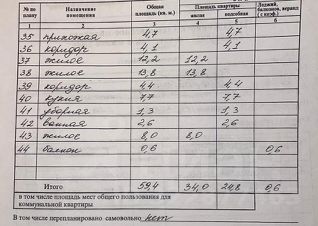 № по плану | Назначение помещения | Общая площадь (кв. м.) | Площадь квартиры | Лоджий, балконов, веранд (с коэф.)
жилая | подсобная
1 | 2 | 3 | 4 | 5 | 6
35 прихожая 4,7 4,7
36 коридор 4,1 4,1
37 жилое 12,2 12,2
38 жилое 13,8 13,8
39 коридор 4,4 4,4
40 кухня 7,7 7,7
41 уборная 1,3 1,3
42 ванная 2,6 2,6
43 жилое 8,0 8,0
44 балкон 0,6 0,6
Итого 59,4 34,0 24,8 0,6
в том числе площадь мест общего пользования для
коммунальной квартиры
В том числе перепланировано самовольно нет